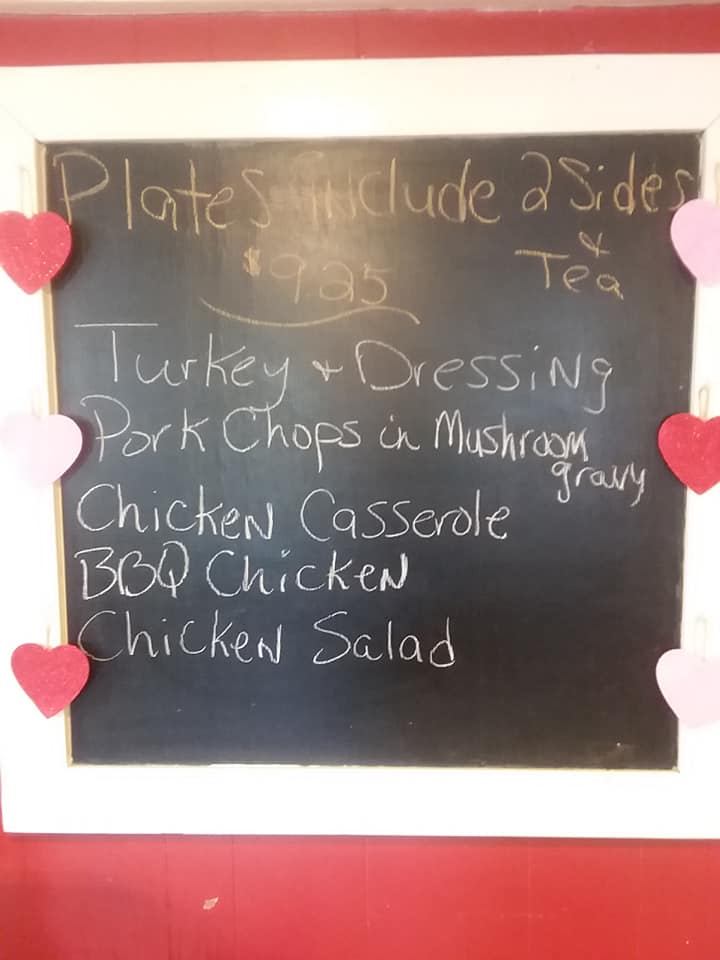 Plates include 2 Sides
& 
$9.25 Tea
Turkey + Dressing
Pork Chops in Mushroom
gravy
Chicken Casserole
BBQ Chicken
Chicken Salad